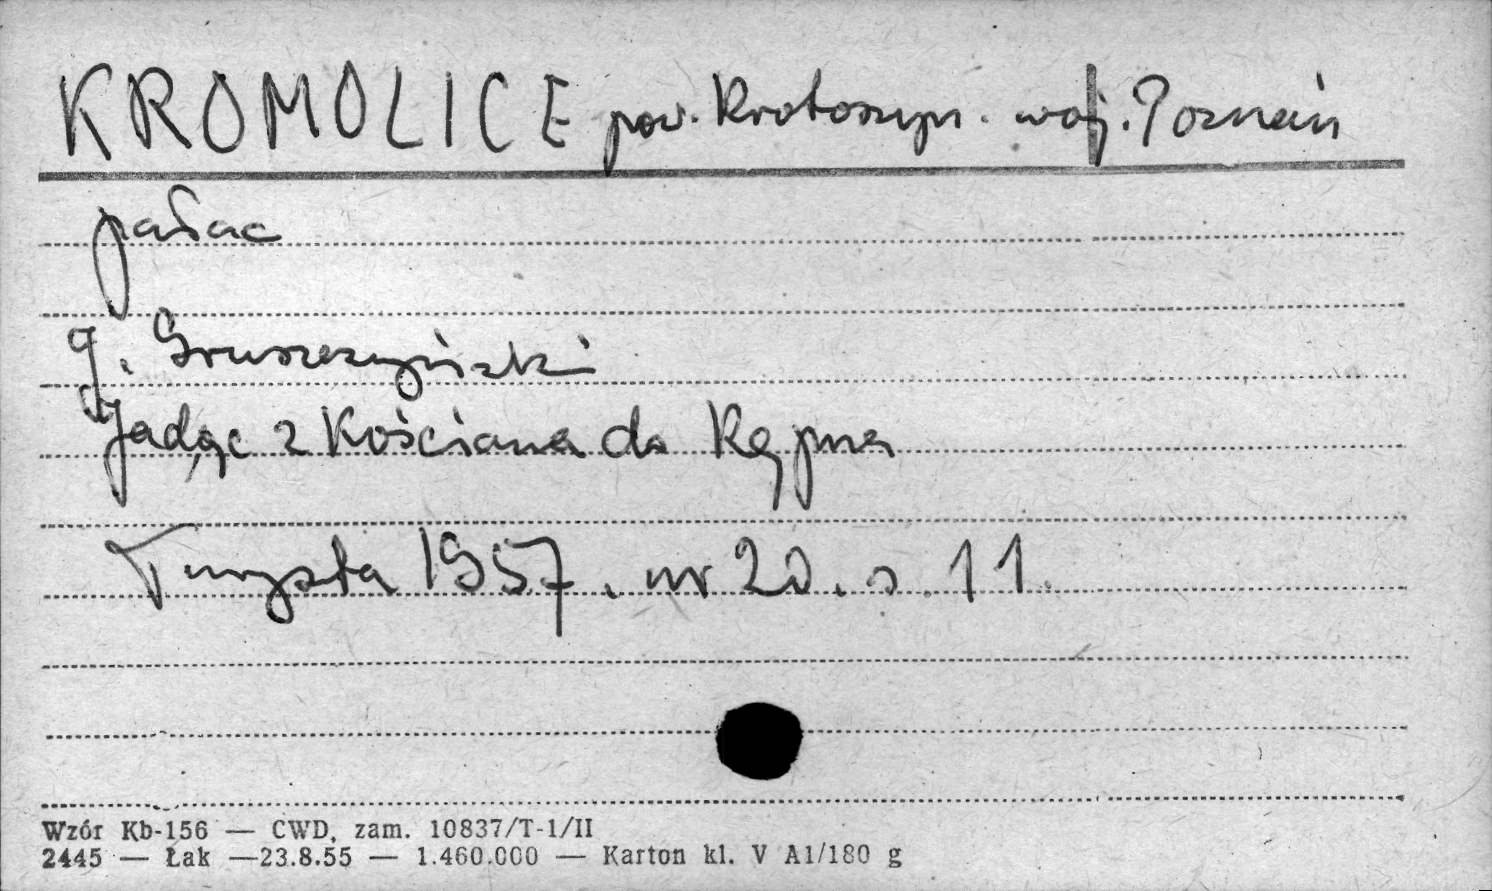 KROMOLICE pow. Krotoszyn. woj. Poznań
pałac
J. Gruszczyński
Jadąc z Kościana do Kępna
Turysta 1957. nr 20. s. 11.
Wzór Kb-156 — CWD, zam. 10837/T-1/II
2445 — Łak —23.8.55 — 1.460.000 — Karton kl. V A1/180 g